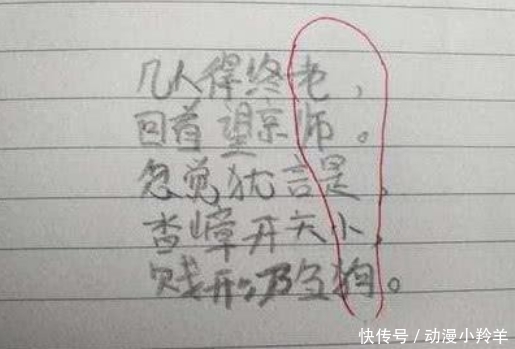 几人得终老，
回首望京师。
忽觉犹言是，
杳嶂开天小，
贱形乃刍狗。
快传号/动漫小羚羊